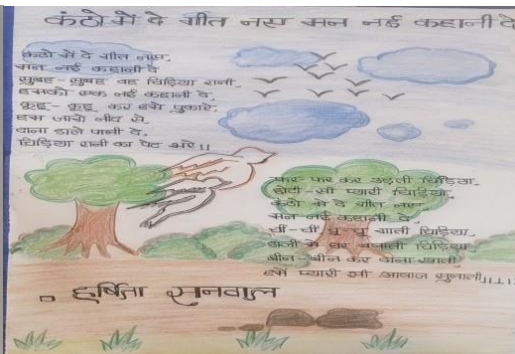 कंठो में दे गीत नया मन नई कहानी दे
कंठो में दे गीत नया,
मन नई कहानी दे
सुबह-सुबह वह चिड़िया रानी
हमको एक नई कहानी दे
कुहू-कुहू कर हमें पुकारे
हम जागे नींद से,
दाना डाले पानी दे,
चिड़िया रानी का पेट भरे।।
फर-फर कर उड़ती चिड़िया,
छोटी-सी प्यारी चिड़िया
कंठो में दे गीत नया
मन नई कहानी दे,
चीं-चीं चूं-चूं गाती चिड़िया
डाली में घर बनाती चिड़िया
बीन-बीन कर दाना खाती
हमें प्यारी सी आवाज सुनाती।।
हर्षिता सनवाल